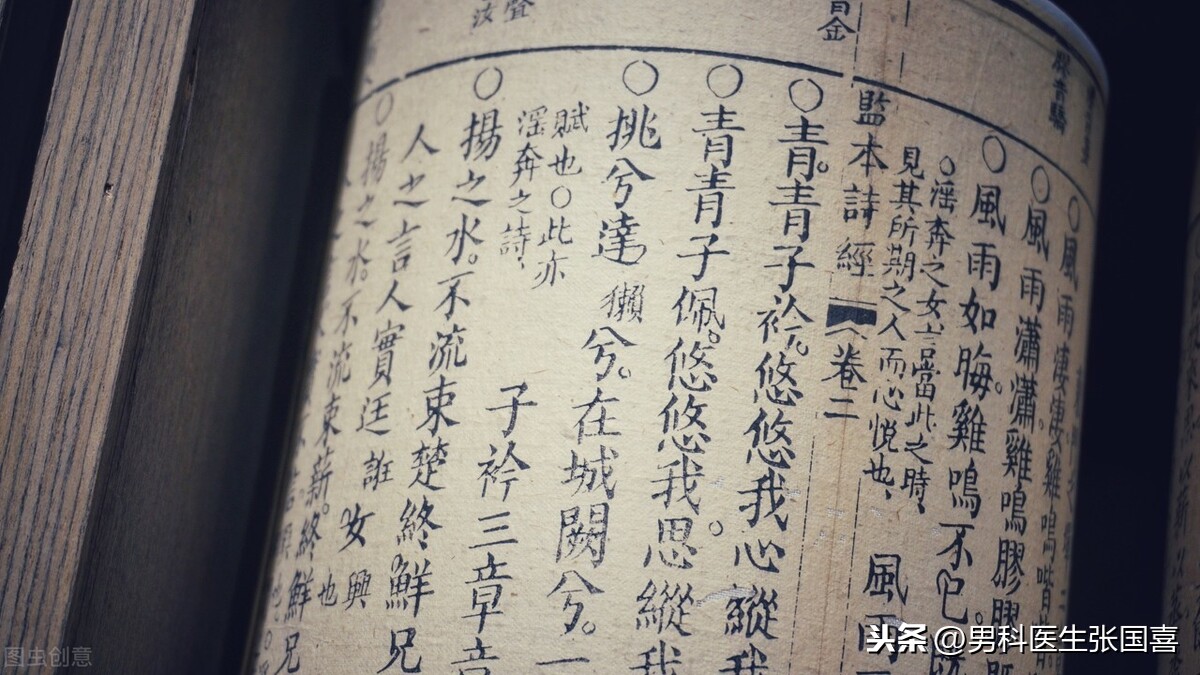 ○風雨淒淒雞鳴喈
○風雨瀟瀟雞鳴膠膠
○風雨如晦。雞鳴不已。
○淫奔之女言當此之時、
見其所期之人而心悅也、
風雨
監本詩經
卷二
○青。青青子衿。悠悠我心縱我
○青青子佩。悠悠我思。縱我
○挑兮達
獺
兮。在城闕兮。一
賦也○此亦
淫奔之詩、
子衿三章章
○揚之水。不流束楚終鮮兄
人之言人實迋
誑
女
興
也
○揚之水。不流束薪。終鮮兄
图虫创意
头条 @男科医生张国喜